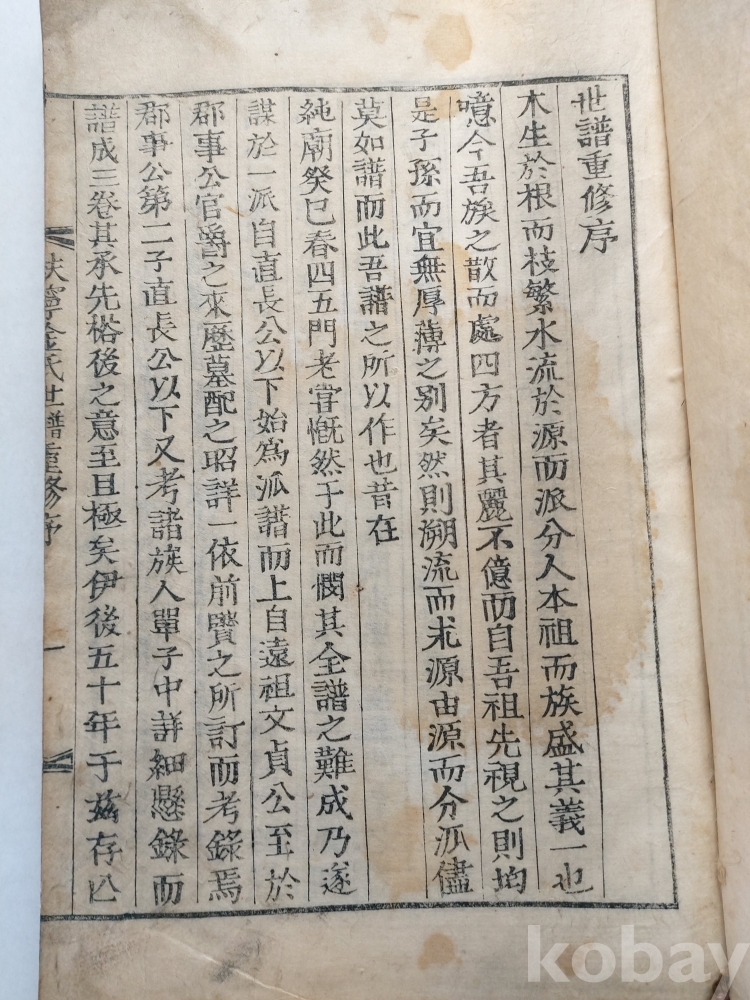 世譜重修序
木生於根而枝繁水流於源而派分人本祖而族盛其義一也
噫今吾族之散而處四方者其麗不億而自吾祖先視之則均
是子孫而宜無厚薄之别矣然則溯流而求源由源而分派儘
莫如譜而此吾譜之所以作也昔在
純廟癸巳春四五門老嘗慨然于此而憫其全譜之難成乃遂
謀於一派自直長公以下始爲派譜而上自遠祖文貞公至於
郡事公官爵之來歷墓配之昭詳一依前賢之所訂而考錄焉
郡事公第二子直長公以下又考諸族人單子中詳細懸錄而
譜成三卷其承先裕後之意至且極矣伊後五十年于玆存亡
扶寧金氏世譜重修序
一
kobay